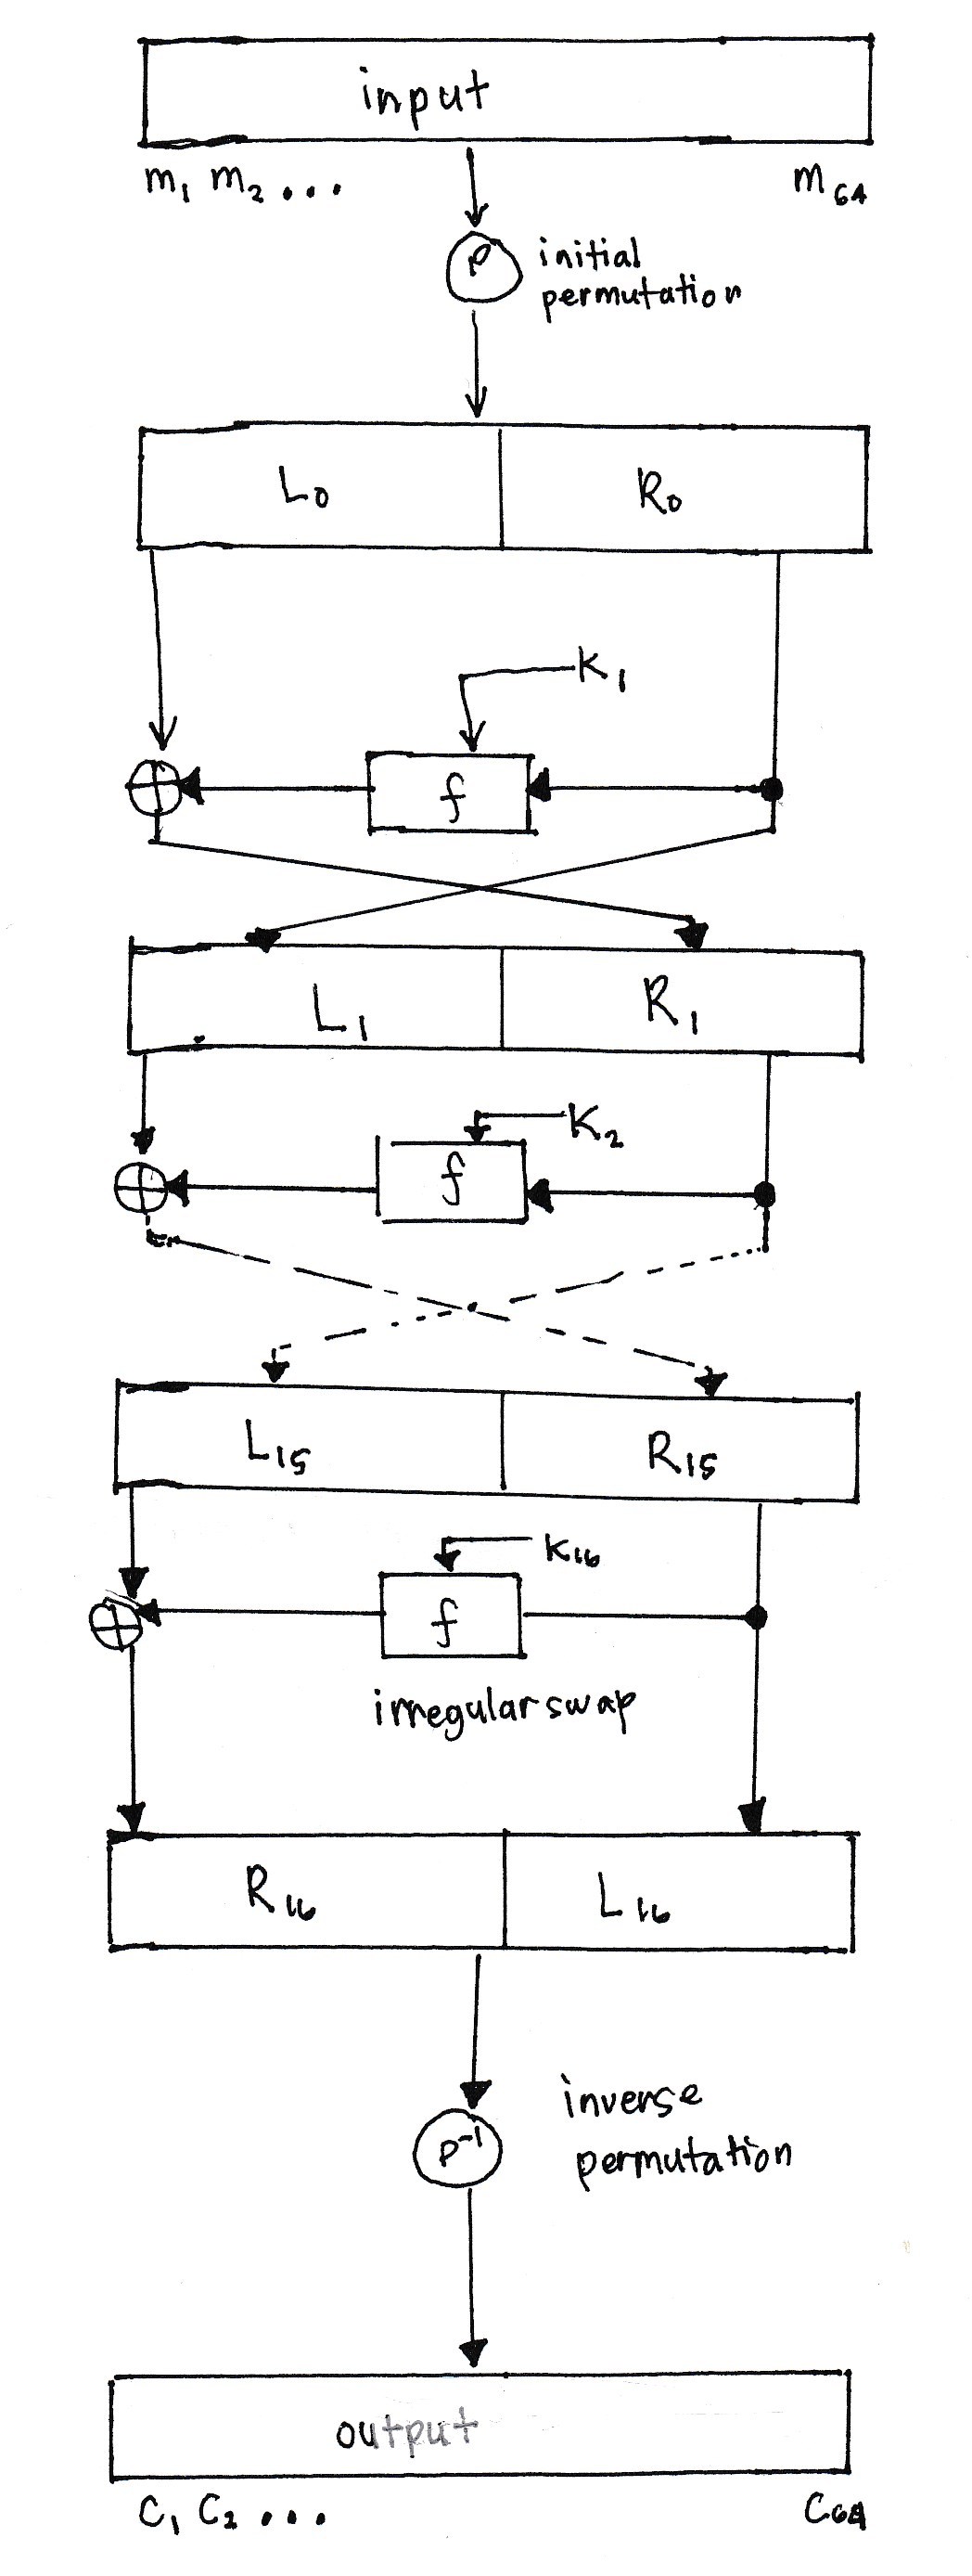 input
m₁ m₂ ... m₆₄
P
initial
permutation
L₀ R₀
K₁
⊕ f
L₁ R₁
K₂
⊕ f
L₁₅ R₁₅
K₁₆
⊕ f
irregular swap
R₁₆ L₁₆
P⁻¹
inverse
permutation
output
C₁ C₂ ... C₆₄